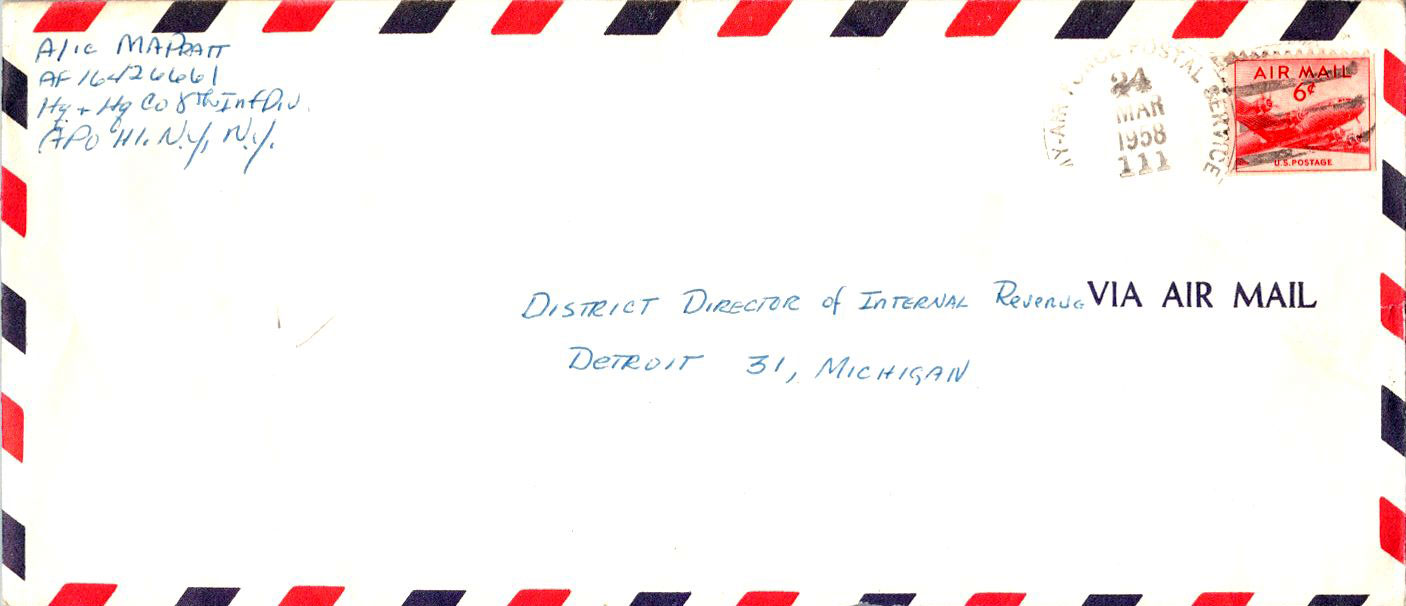 A/1c MA Pratt
AF 16426661
Hq + Hq Co 8th Inf Div.
APO 111, N.Y., N.Y.
AY-AIR FORCE POSTAL SERVICE
24
MAR
1958
111
AIR MAIL
6¢
U.S. POSTAGE
DISTRICT DIRECTOR of INTERNAL Revenue
VIA AIR MAIL
DETROIT 31, MICHIGAN